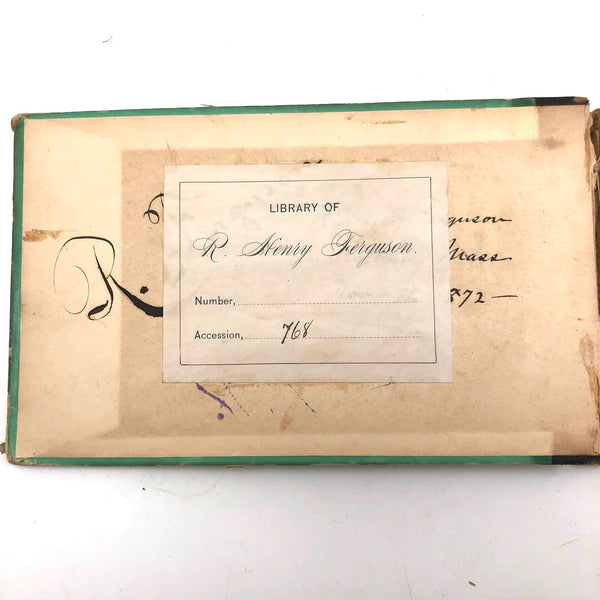 LIBRARY OF
R. Henry Ferguson.
Number,
Accession, 768
R.
guson
Mass
1872—